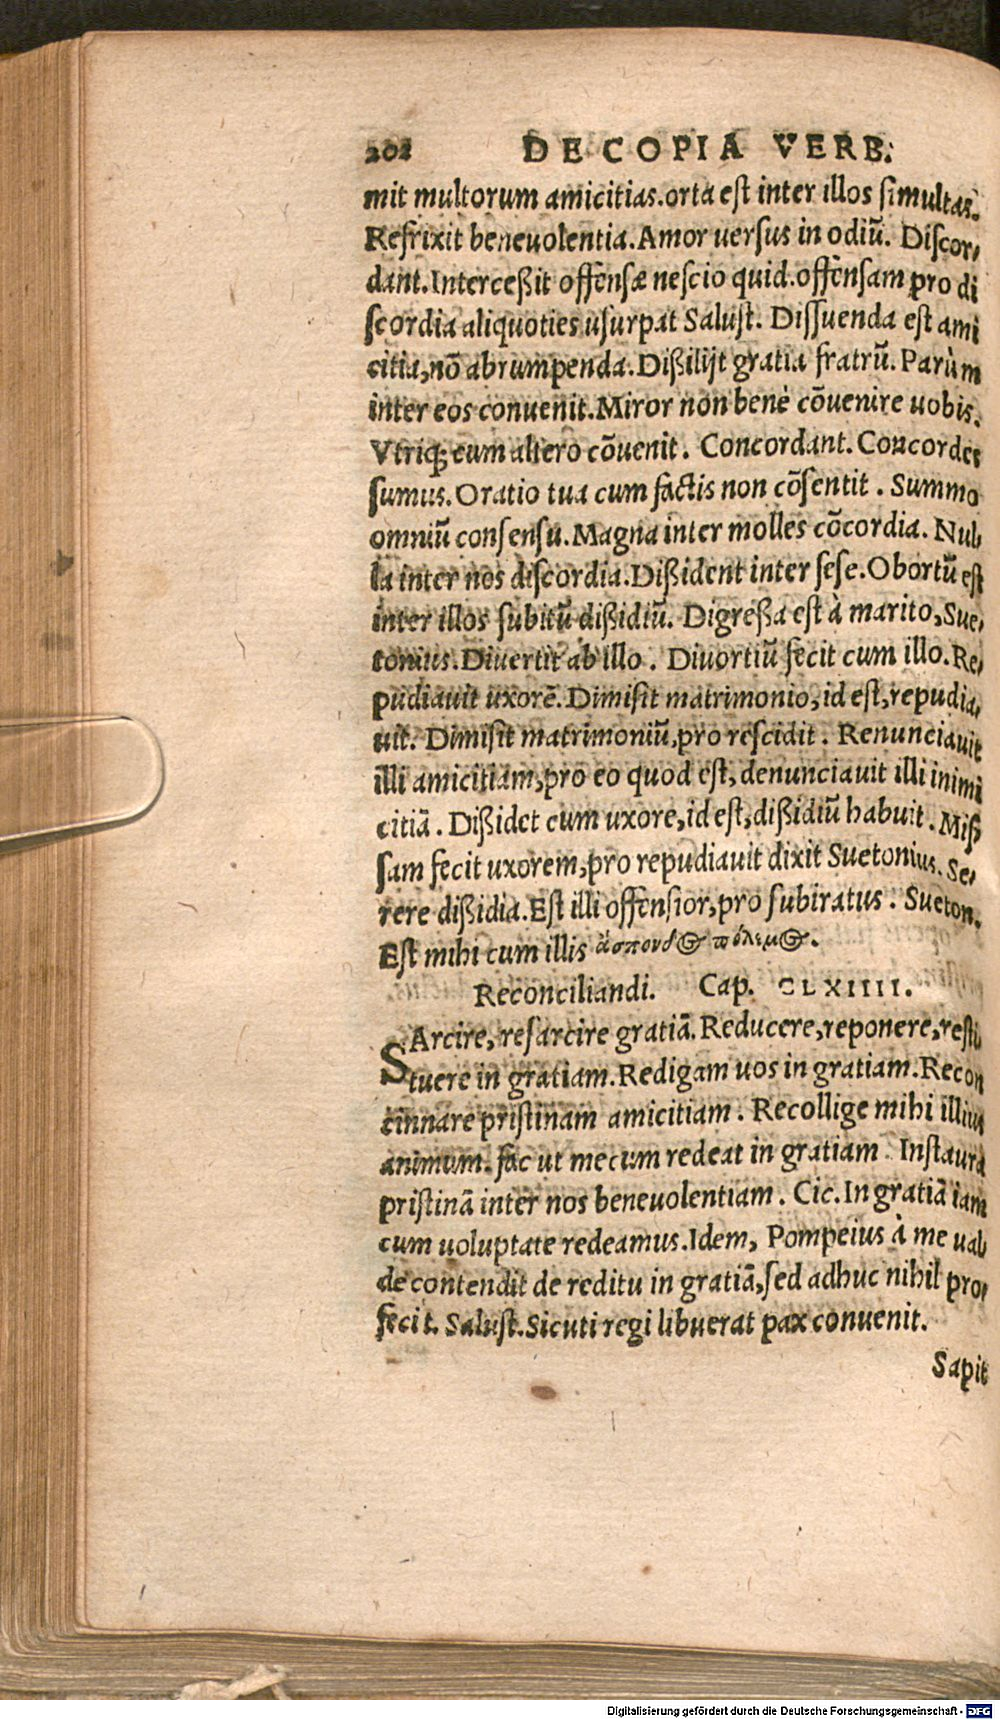 202 DE COPIA VERB.
mit multorum amicitias.orta eſt inter illos ſimultas.
Refrixit beneuolentia.Amor uerſus in odiũ. Diſcor-
dant.Interceßit offenſæ neſcio quid.offenſam pro di
ſcordia aliquoties uſurpat Saluſt. Diſſuenda eſt ami
citia,nõ abrumpenda.Dißilijt gratia fratrũ. Parùm
inter eos conuenit.Miror non benè cõuenire uobis.
Vtriq; cum altero cõuenit. Concordant. Concordes
ſumus.Oratio tua cum factis non cõſentit. Summo
omniũ conſenſu.Magna inter molles cõcordia. Nul-
la inter nos diſcordia.Dißident inter ſeſe.Obortũ eſt
inter illos ſubitũ dißidiũ. Digreßa eſt à marito,Sue-
tonius.Diuertit ab illo. Diuortiũ fecit cum illo.Re-
pudiauit uxorẽ.Dimiſit matrimonio,id eſt,repudia-
uit. Dimiſit matrimoniũ,pro reſcidit. Renunciauit
illi amicitiam,pro eo quod eſt,denunciauit illi inimi
citiã. Dißidet cum uxore,id eſt,dißidiũ habuit. Miß
ſam fecit uxorem,pro repudiauit dixit Suetonius. Se-
rere dißidia.Eſt illi offenſior,pro ſubiratus. Sueton.
Eſt mihi cum illis ἄσπονδος πόλεμος.
Reconciliandi. Cap. CLXIIII.
SArcire,reſarcire gratiã.Reducere,reponere,reſti
tuere in gratiam.Redigam uos in gratiam.Recon
cinnare priſtinam amicitiam. Recollige mihi illius
animum. fac ut mecum redeat in gratiam. Inſtaura
priſtinã inter nos beneuolentiam. Cic.In gratiã iam
cum uoluptate redeamus.Idem, Pompeius à me ual-
de contendit de reditu in gratiã,ſed adhuc nihil pro-
fecit. Saluſt.Sicuti regi libuerat pax conuenit.
Sapit
Digitalisierung gefördert durch die Deutsche Forschungsgemeinschaft - DFG